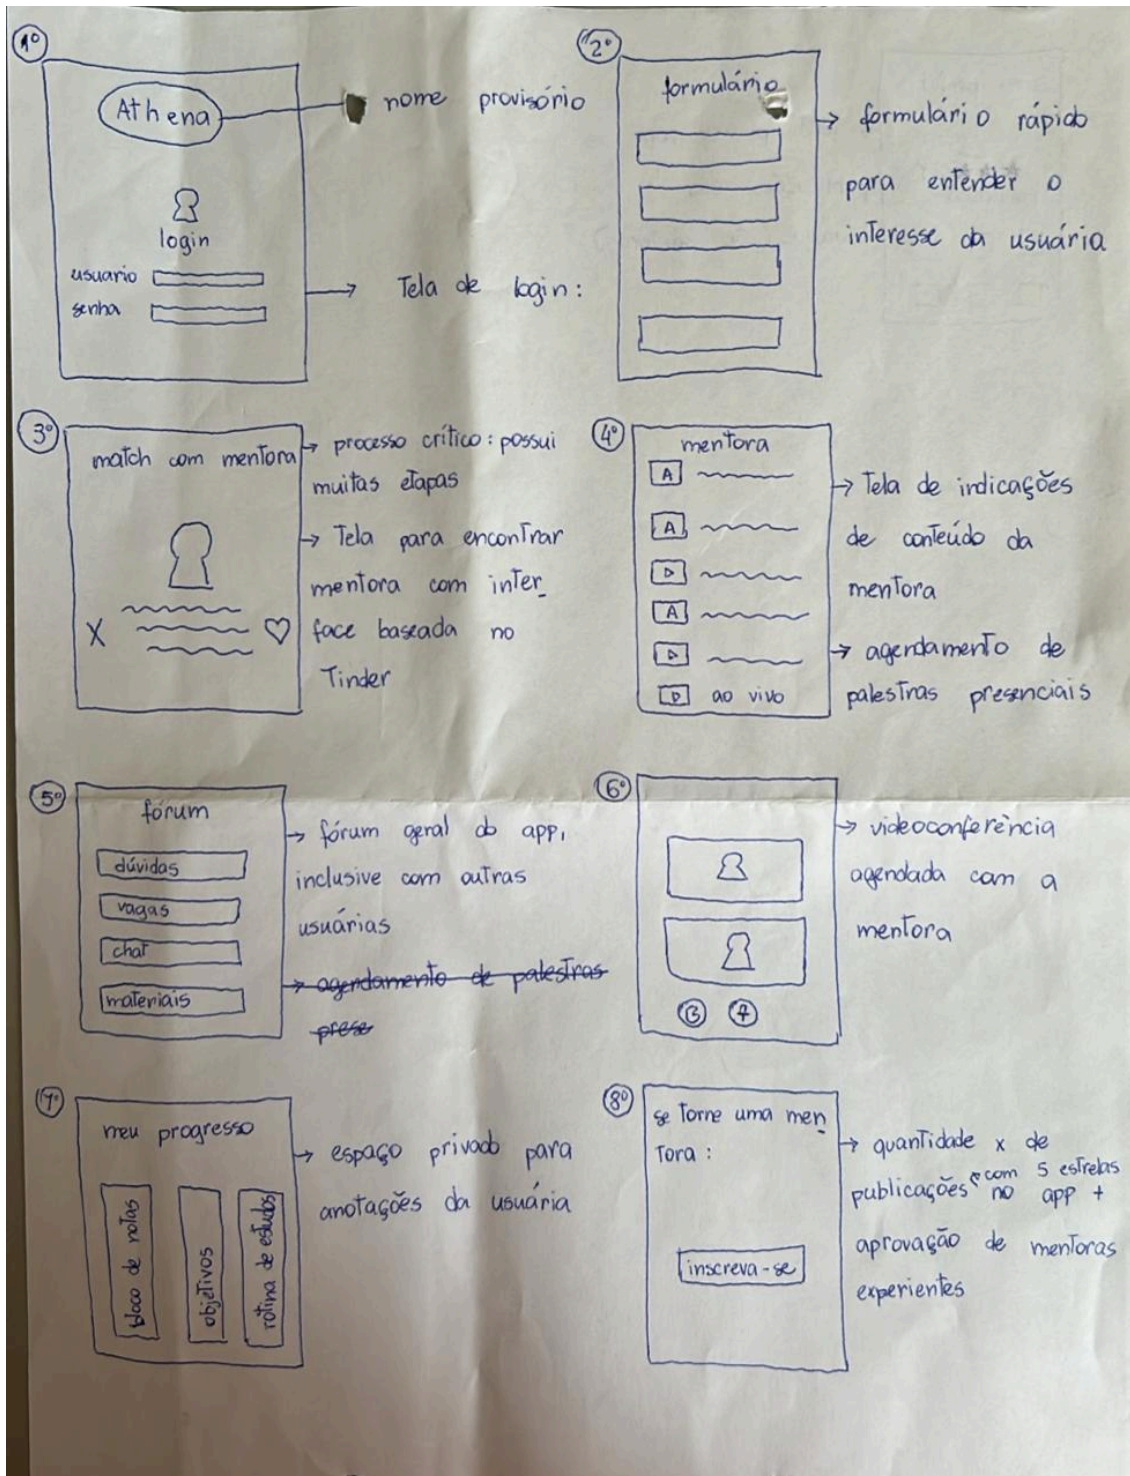 1º
Athena
nome provisório
login
usuario
senha
Tela de login:
2º
formulário
formulário rápido
para entender o
interesse da usuária
3º
match com mentora
processo crítico: possui
muitas etapas
Tela para encontrar
mentora com inter_
face baseada no
Tinder
X
4º
mentora
A
A
A
ao vivo
Tela de indicações
de conteúdo da
mentora
agendamento de
palestras presenciais
5º
fórum
dúvidas
vagas
chat
materiais
fórum geral do app,
inclusive com outras
usuárias
agendamento de palestras
prese
6º
videoconferência
agendada com a
mentora
7º
meu progresso
bloco de notas
objetivos
rotina de estudos
espaço privado para
anotações da usuária
8º
se torne uma men
tora:
inscreva-se
quantidade x de
publicações com 5 estrelas
no app +
aprovação de mentoras
experientes